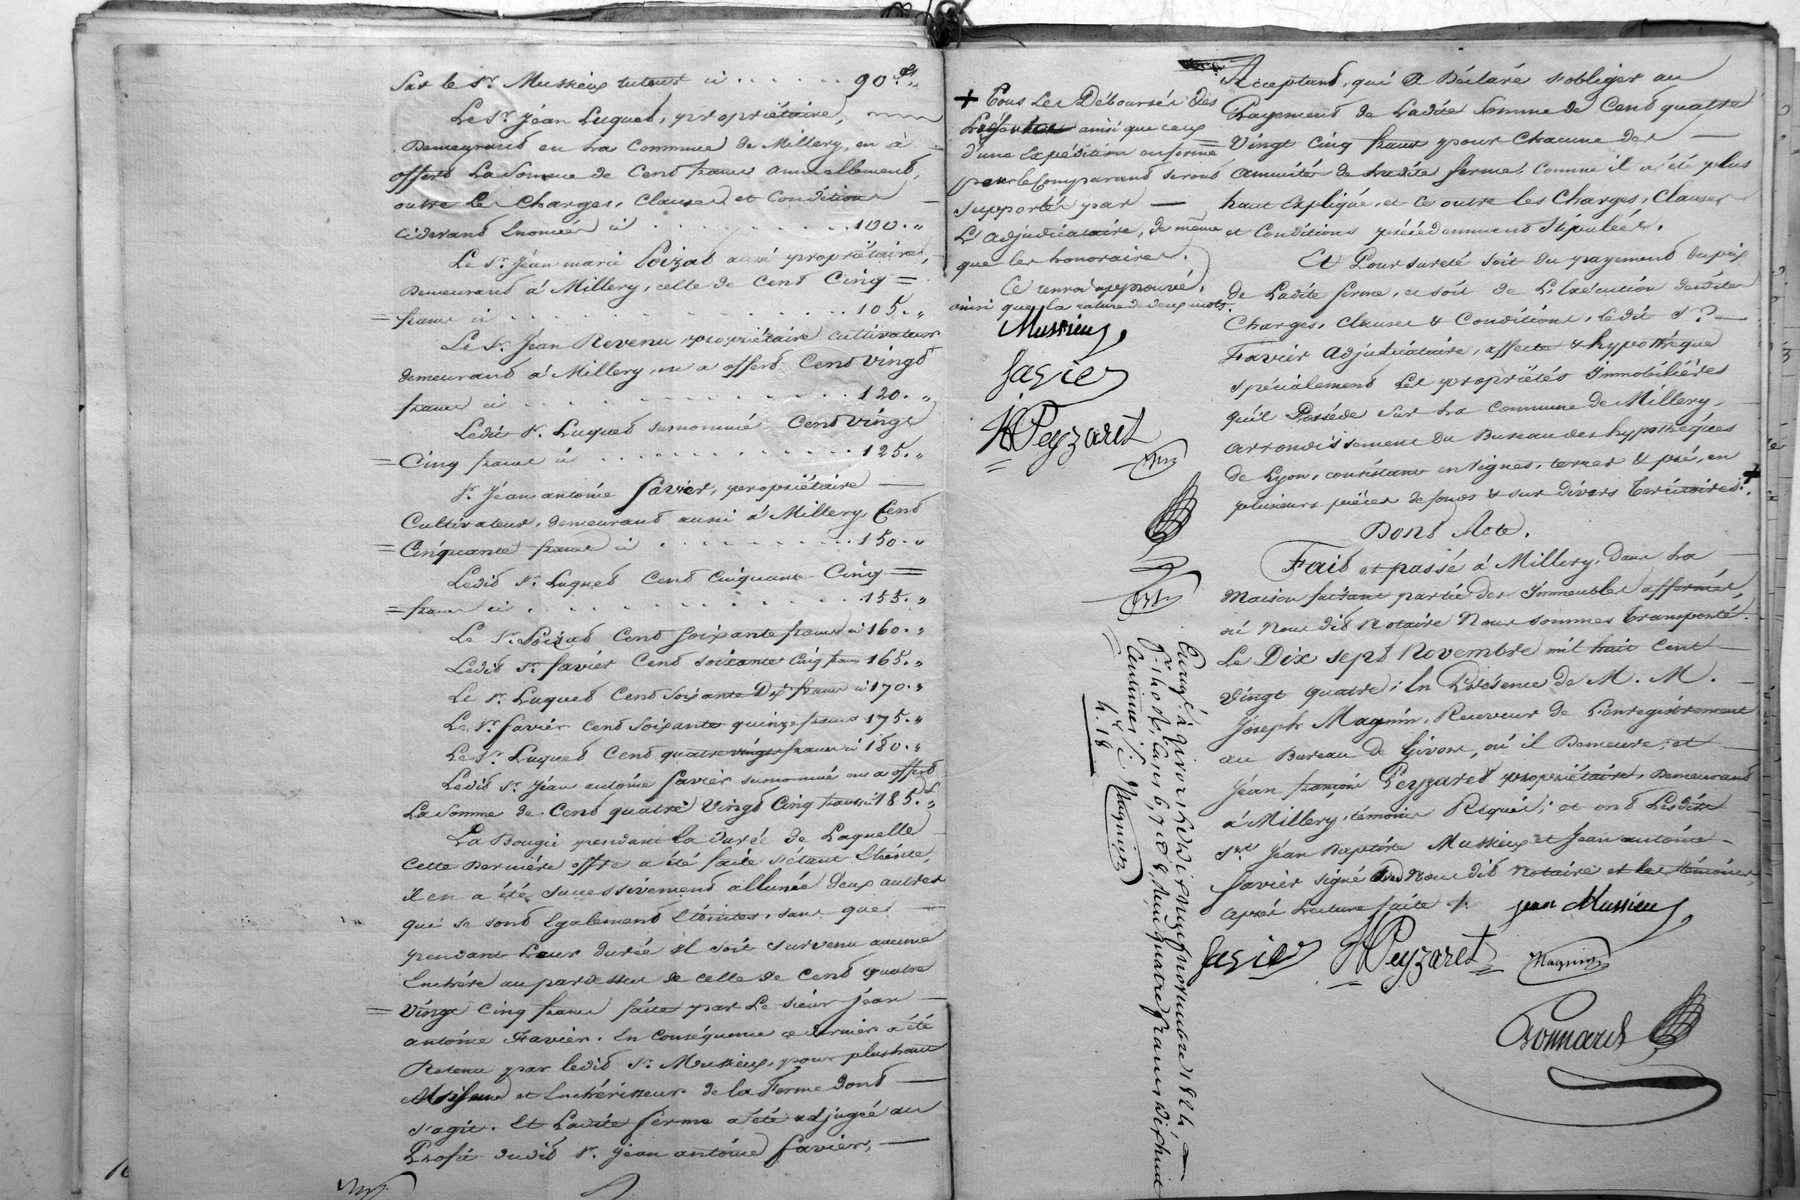 Par le Sr. Mussieux tuteur ci . . . . . . 90.f"
Le Sr. Jéan Luquet, propriétaire,
Demeurant en La Commune de Millery, en à
offert La Somme de Cent francs annuellement,
outre Les Charges, Clauses et Conditions
cidevant Enoncées ci . . . . . . . . . 100. "
Le Sr. Jéan marie Poizat aussi propriétaire,
Demeurant à Millery, celle de Cent Cinq =
= francs ci . . . . . . . . . . . . . 105. "
Le Sr. Jéan Revenu, propriétaire cultivateur
demeurant à Millery, en a offert Cent Vingt
francs ci . . . . . . . . . . . . . 120. "
Ledit Sr. Luquet surnommé Cent Vingt
= Cinq francs ci . . . . . . . . . . . 125. "
Sr. Jéan antoine favier, propriétaire —
Cultivateur, demeurant aussi à Millery, Cent
= Cinquante francs ci . . . . . . . . . 150. "
Ledit Sr. Luquet Cent Cinquante Cinq =
= francs ci . . . . . . . . . . . . . 155. "
Le Sr. Poizat Cent soixante francs ci 160. "
Ledit Sr. favier Cent soixante Cinq francs 165. "
Le Sr. Luquet Cent soixante Dix francs ci 170. "
Le Sr. favier cent soixante quinze francs 175. "
Le Sr. Luquet Cent quatre vingts francs ci 180. "
Ledit Sr. Jéan antoine favier surnommé en a offert
La Somme de Cent quatre Vingt Cinq francs ci 185.f"
La Bougie pendant la durée de Laquelle
Cette Dernière offre a été faite s'étant Eteinte,
il en a été successivement allumée deux autres
qui se sont Egalement Eteintes, sans que —
pendant Leur durée il soit survenu aucune
Enchère au pardessus de celle de Cent quatre
= Vingt Cinq francs faite par Le sieur Jéan —
antoine Favier. En conséquence ce dernier a été
Retenu par ledit Sr. Mussieux, pour plus haut
et Enchérisseur de la Ferme dont —
s'agit. Et Ladite ferme a été adjugée au
Profit dudit Sr. Jéan antoine favier, —
+ Tous Les Déboursés des
ainsi que ceux
d'une Expédition en forme
pour le Comparant seront
supportés par —
L'adjudicataire, de même
que les honoraires.
Ce renvoi approuvé,
ainsi que la rature de deux mots.
Mussieux
favier
JPeyzaret
Acceptant, qui a Déclaré s'obliger au
Payement de Ladite Somme de Cent quatre
= Vingt Cinq francs pour Chacune des —
années de Ladite ferme, Comme il a été plus
haut Expliqué, et ce outre les Charges, Clauses
et Conditions précédemment Stipulées.
Et Pour sureté soit du payement du prix
de Ladite ferme, et soit de L'Exécution desdites
Charges, Clauses & Conditions, ledit Sr. —
Favier adjudicataire, affecte & hypothèque
spécialement Les propriétés Immobilières
qu'il Possède sur La commune de Millery,
arrondissement du Bureau des hypothèques
de Lyon, consistant en Vignes, terres & pré, en
plusieurs pièces de fonds & sur divers Territoires. +
Dont Acte.
Fait et passé à Millery, Dans La —
Maison faisant partie des Immeubles affermés,
où Nous dit Notaire Nous sommes transporté
Le Dix sept Novembre mil huit Cent —
Vingt quatre; En Présence de M. M. —
Joseph Magnin, Receveur de L'enregistrement
au Bureau de Givors, où il Demeure, et —
Jéan françois Peyzaret propriétaire, Demeurant
à Millery, témoins Requis; et ont Lesdits
Srs. Jéan Baptiste Mussieux et Jean antoine —
favier signé avec Nous dit Notaire et les témoins,
après Lecture faite.
jean Mussieux
favier JPeyzaret Magnin
Bonnard
Enregé. à Givors le dix neuf novembre 1824
fo. 110 Ro. Cases 6, 7 et 8, Reçu quatre francs dix huit
Centimes.
Magnin
4. 18